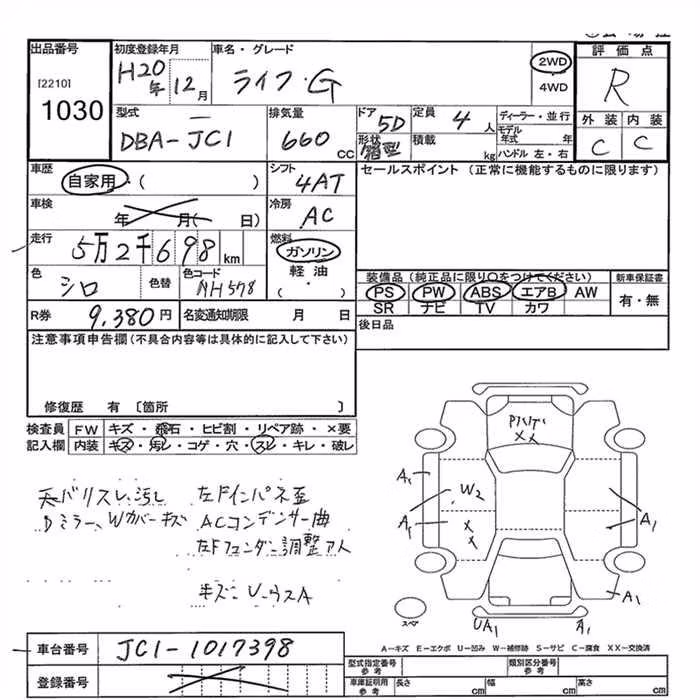 出品番号
[2210]
1030
初度登録年月
H20年 12月
車名・グレード
ライフ・G
2WD
4WD
評価点
R
外装 内装
C C
型式
DBA-JC1
排気量
660 CC
ドア 5D
形状 箱型
定員 4人
積載 kg
ディーラー・並行
モデル年式 年
ハンドル 左・右
車歴
自家用・( )
シフト
4AT
セールスポイント (正常に機能するものに限ります)
車検
年 月( 日)
冷房
AC
走行
5万2千698 km
燃料
ガソリン
軽油
( ・ )
色
シロ
色替
色コード
NH578
装備品(純正品に限り○をつけてください)
PS PW ABS エアB AW
SR ナビ TV カワ
新車保証書
有・無
R券 9,380円
名変通知期限 月 日
後日品
注意事項申告欄(不具合内容等は具体的に記入して下さい)
修復歴 有 〔箇所 〕
検査員 FW キズ・飛石・ヒビ割・リペア跡・×要
記入欄 内装 キズ・汚レ・コゲ・穴・スレ・キレ・破レ
天バリスレ、汚レ
Dミラー、Wカバーキズ
左Fインパネ歪
ACコンデンサー曲
左Fフェンダー調整アト
キズ、UウスA
XX
A1
W2
A1
XX
A1
A1
スペア
UA1
A1
A-キズ E-エクボ U-凹み W-補修跡 S-サビ C-腐食 XX-交換済
車台番号
JC1-1017398
登録番号
型式指定番号 参考
類別区分番号 参考
車庫証明用 参考
長さ cm
幅 cm
高さ cm